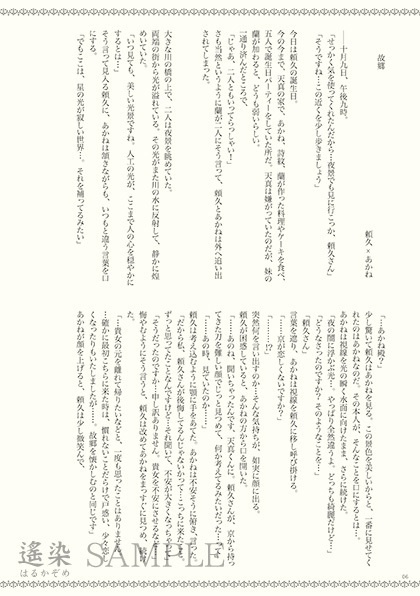 故郷
頼久×あかね
――十月九日、午後九時。
「せっかく気を使ってくれたんだから…夜景でも見に行こっか、頼久さん」
「そうですね…この近くを少し歩きましょう」
今日は頼久の誕生日。
今の今まで、天真の家で、あかね、詩紋、蘭が作った料理やケーキを食べ、
五人で誕生日パーティーをしていた所だ。天真は嫌がっていたのだが、妹の
蘭が加わると、どうも弱いらしい。
一通り済んだところで、
「じゃあ、二人ともいってらっしゃい！」
さも当然というように蘭が二人にそう言って、頼久とあかねは外へ追い出
されてしまった。
大きな川の橋の上で、二人は夜景を眺めていた。
両端の街から光が溢れている。その光がまた川の水に反射して、静かに煌
めいていた。
「いつ見ても、美しい光景ですね。人工の光が、ここまで人の心を穏やかに
するとは…」
そう言って見入る頼久に、あかねは頷きながらも、いつもと違う言葉を口
にする。
「でもここは、星の光が寂しい世界…。それを補ってるみたい」
「…あかね殿？」
少し驚いて頼久はあかねを見る。この景色を美しいからと、一番に見せてく
れたのはあかねなのだ。その本人が、そんなことを口にするとは…。
あかねは視線を光の瞬く水面に向けたまま、さらに続けた。
「夜の闇に浮かぶ光…。やっぱり全然違うよ。どっちも綺麗だけど…」
「どうなさったのですか？そのようなことを…」
「頼久さん」
言葉を遮り、あかねは視線を頼久に移し呼び掛ける。
「……京が恋しくないですか？」
「……！？」
突然何を言い出すのか…そんな気持ちが、如実に顔に出る。
頼久が困惑していると、あかねの方から口を開いた。
「……あのね、聞いちゃったんです。天真くんに。頼久さんが、京から持っ
てきた刀を難しい顔でじっと見つめて、何か考えてるみたいだった…って」
「……あの時、見ていたのか……」
頼久は考え込むように顎に手をあてた。あかねは不安そうに俯き、言った。
「だから私、頼久さんが後悔してるんじゃないかって…こっちに来たこと。
ずっと思ってたことなんだけど…それ聞いて、不安が大きくなっちゃって」
「そうだったのですか…申し訳ありません。貴女を不安にさせるなど…」
悔やむようにそう言うと、頼久は改めてあかねをまっすぐに見つめ、続けた。
「…貴女の元を離れて帰りたいなどと、一度も思ったことはありません。
…確かに最初こちらに来た時は、慣れないことだらけで戸惑い、少々恋し
くなったりもいたしましたが……。故郷を懐かしむのと同じです」
あかねが顔を上げると、頼久は少し微笑んで、
遙染 SAMPLE
はるかぞめ
06